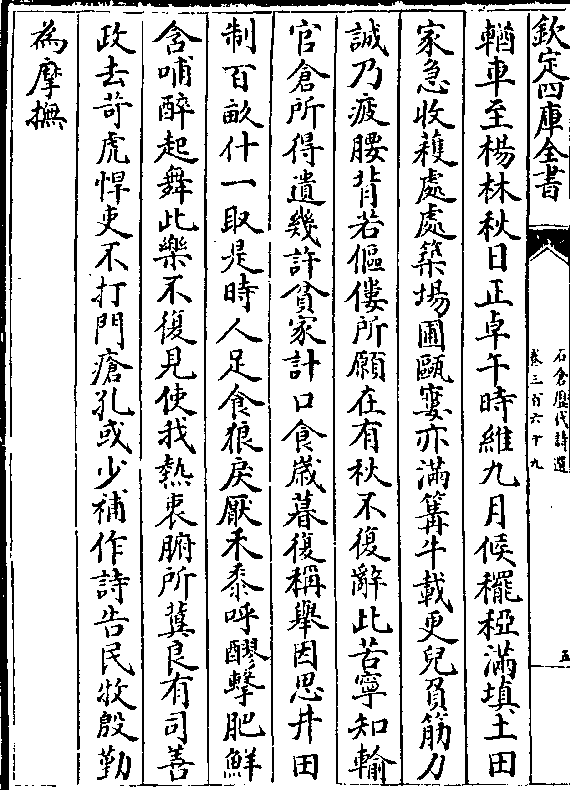 欽定四庫全書
石倉歷代詩選
卷三百六十九
五
輶車至楊林秋日正卓午時維九月候䆉稏滿填土田
家急收穫處處築場圃甌窶亦滿篝牛載更兒負筋力
誠乃疲腰背若傴僂所願在有秋不復辭此苦寧知輸
官倉所得遺幾許貧家計口食歲暮復稱舉因思井田
制百畝什一取是時人足食狼戾厭禾黍呼醪擊肥鮮
含哺醉起舞此樂不復見使我熱衷腑所冀良有司善
政去苛虎悍吏不打門瘡孔或少補作詩告民牧殷勤
為摩撫